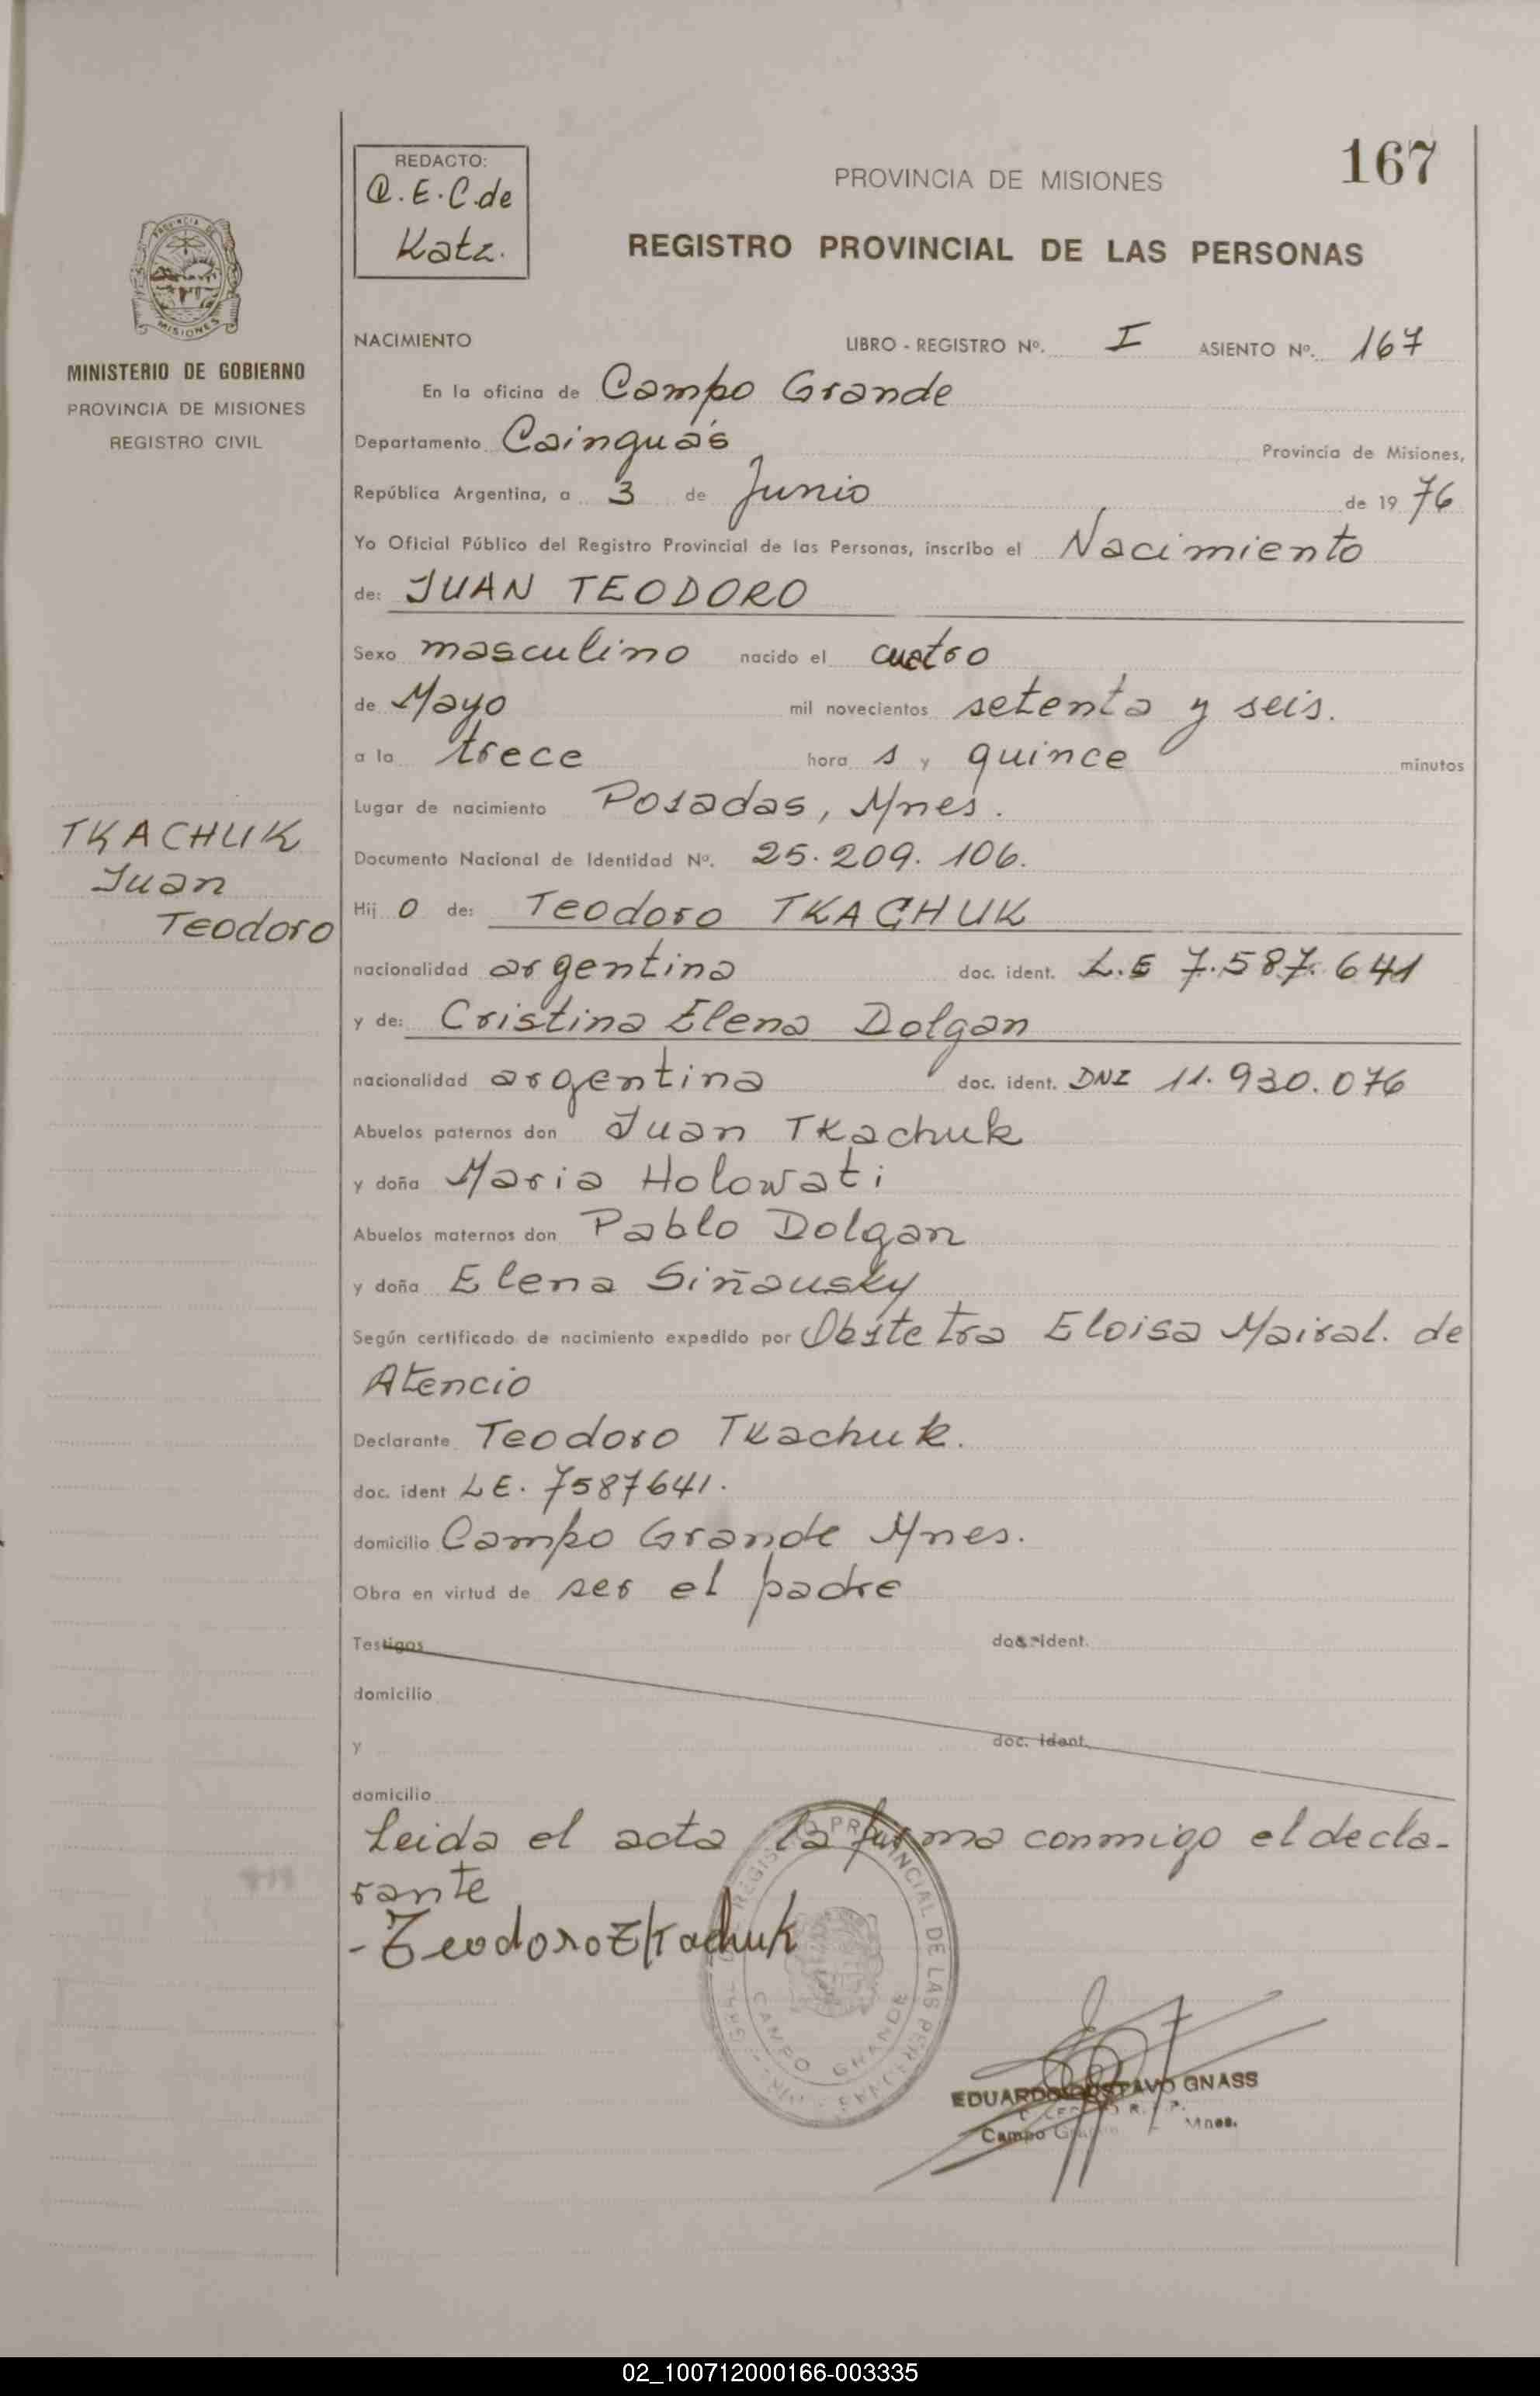 REDACTO:
Q.E.C.de
Katz.
PROVINCIA DE MISIONES
167
REGISTRO PROVINCIAL DE LAS PERSONAS
MISIONES
MINISTERIO DE GOBIERNO
PROVINCIA DE MISIONES
REGISTRO CIVIL
NACIMIENTO LIBRO - REGISTRO Nº. I ASIENTO Nº. 167
En la oficina de Campo Grande
Departamento Cainguás Provincia de Misiones,
República Argentina, a 3 de Junio de 19 76
Yo Oficial Público del Registro Provincial de las Personas, inscribo el Nacimiento
de: JUAN TEODORO
Sexo masculino nacido el cuatro
de Mayo mil novecientos setenta y seis.
a la trece hora s y quince minutos
Lugar de nacimiento Posadas, Mnes.
TKACHUK
Juan
Teodoro
Documento Nacional de Identidad Nº. 25.209.106.
Hij o de: Teodoro TKACHUK
nacionalidad argentina doc. ident. L.E 7.587.641
y de: Cristina Elena Dolgan
nacionalidad argentina doc. ident. DNI 11.930.076
Abuelos paternos don Juan Tkachuk
y doña Maria Holowati
Abuelos maternos don Pablo Dolgan
y doña Elena Siñausky
Según certificado de nacimiento expedido por Obstetra Eloisa Mairal. de
Atencio
Declarante Teodoro Tkachuk.
doc. ident LE. 7587641.
domicilio Campo Grande Mnes.
Obra en virtud de ser el padre
Testigos doc. ident.
domicilio
y doc. ident.
domicilio
Leida el acta la firma conmigo el decla-
rante
- Teodoro Tkachuk
REGISTRO PROVINCIAL DE LAS PERSONAS
CAMPO GRANDE
EDUARDO GUSTAVO GNASS
Campo Mnes.
02_100712000166-003335